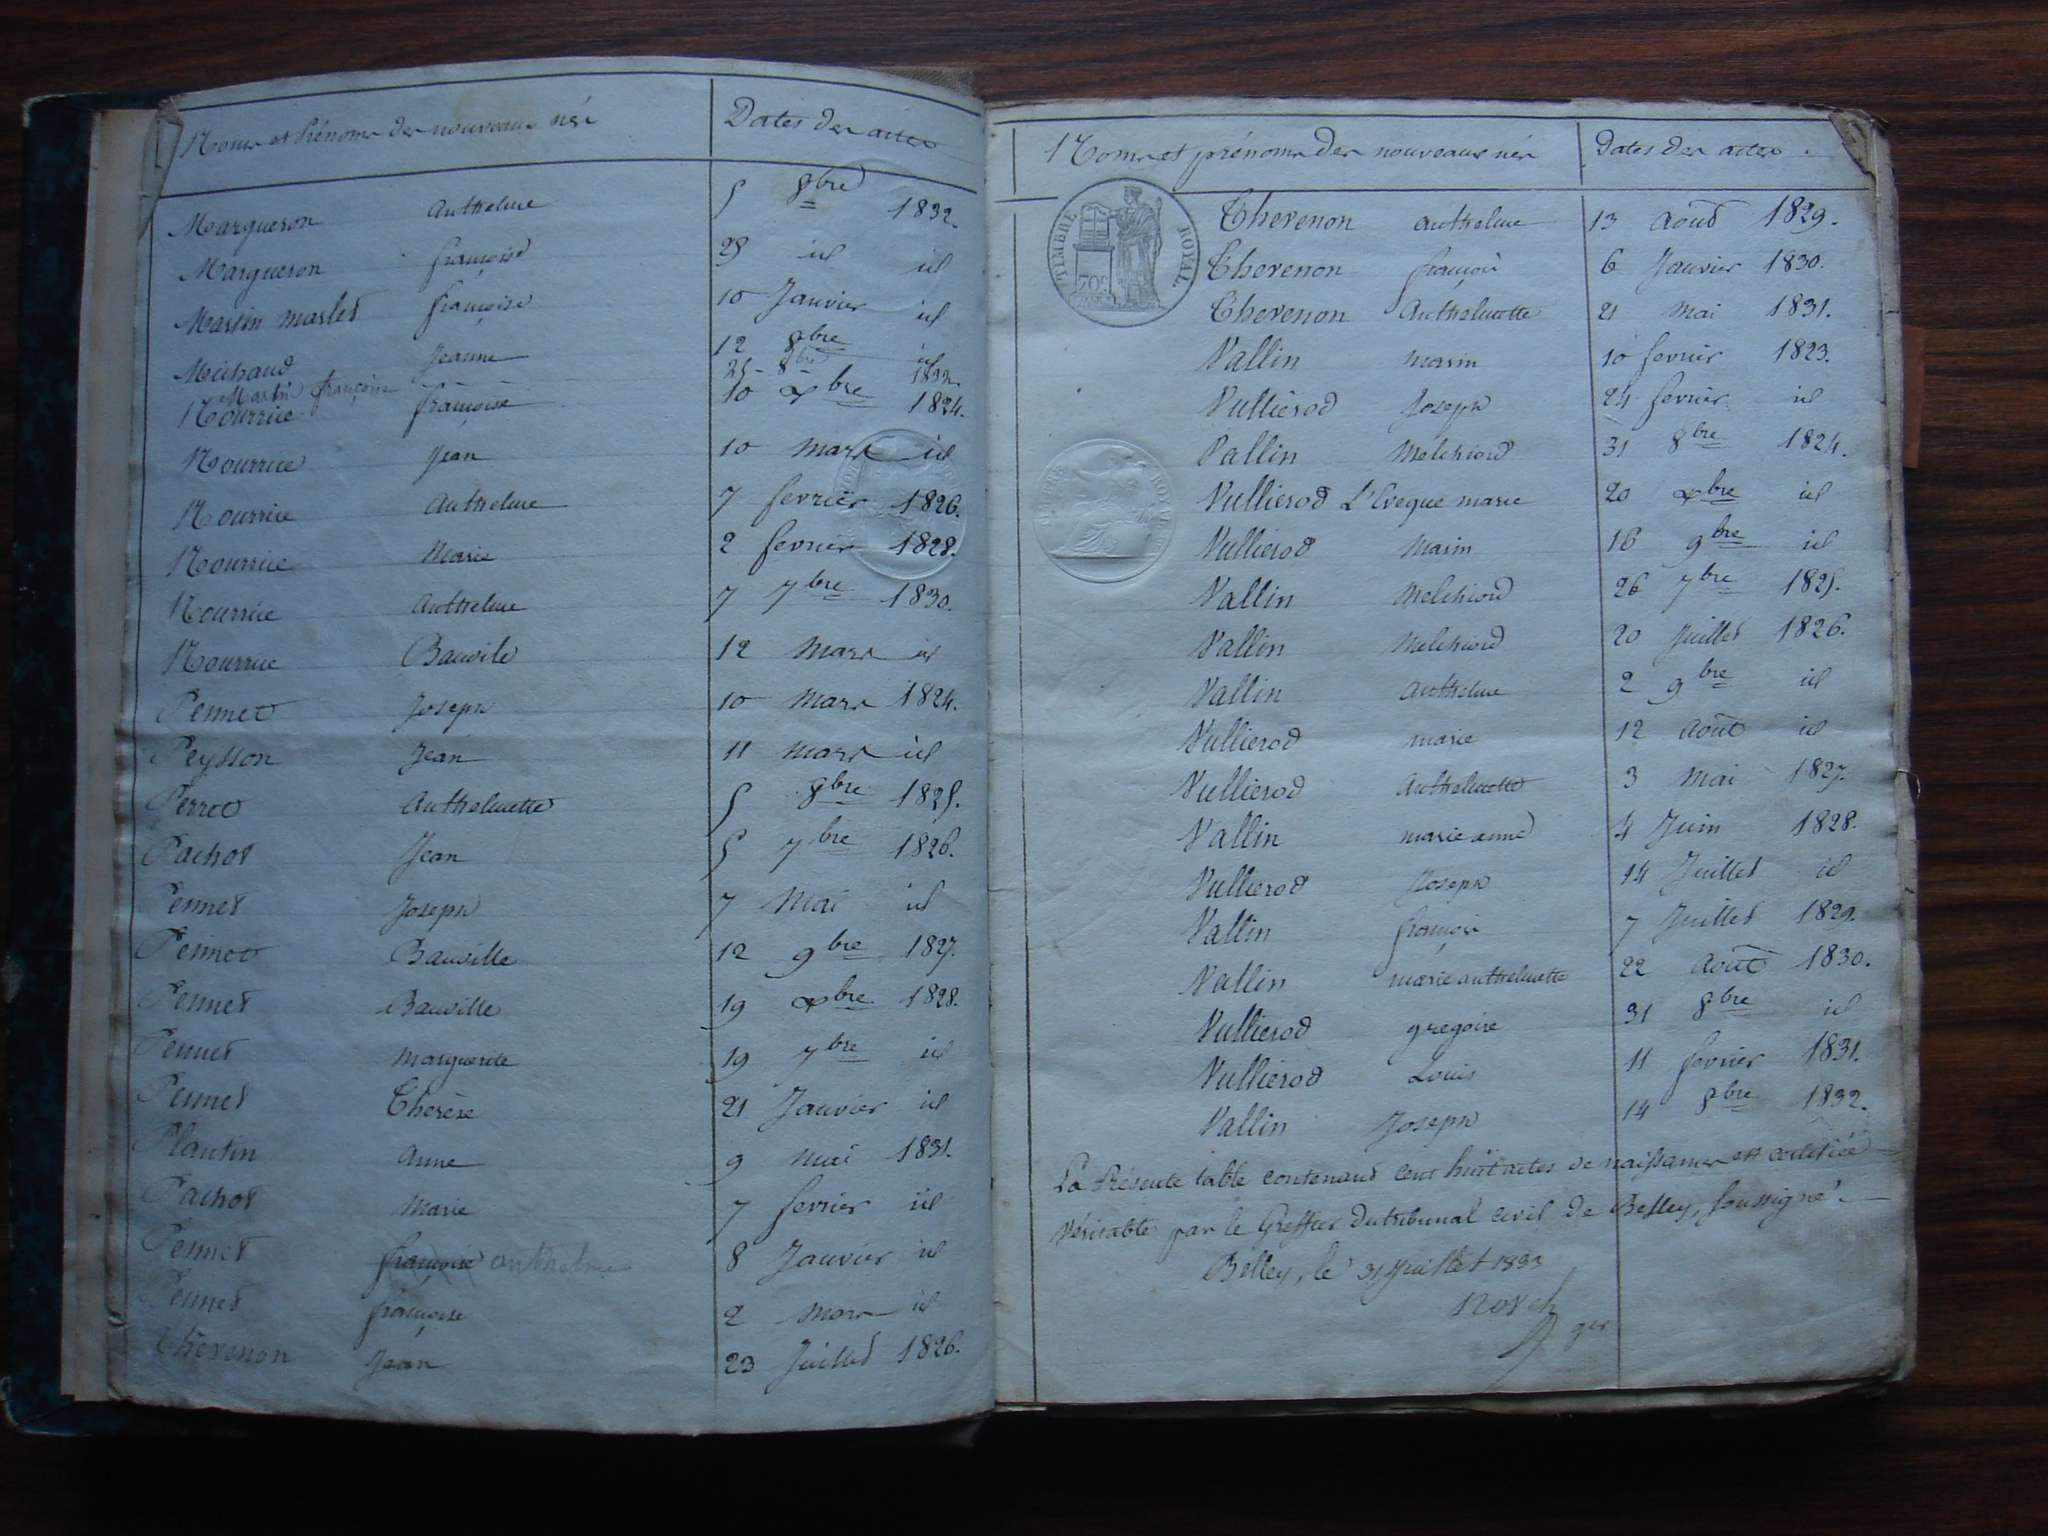 Noms et Prénoms des nouveaux nés Dates des actes
Margueron Anthelme 5 8bre 1832.
Margueron françoise 28 id id
Martin marlet françoise 10 Janvier id
Michaud Jeanne 12 8bre id
Martin françoise 25 8bre 1832.
Nourrice françoise 10 xbre 1824.
Nourrice Jean 10 Mars id
Nourrice Anthelme 7 fevrier 1826.
Nourrice Marie 2 fevrier 1828.
Nourrice Anthelme 7 7bre 1830.
Nourrice Bauville 12 Mars id
Pennet Joseph 10 Mars 1824.
Peysson Jean 11 Mars id
Perret Anthelmette 5 8bre 1825.
Pachot Jean 5 7bre 1826.
Pennet Joseph 7 Mai id
Pennet Bauville 12 9bre 1827.
Pennet Bauville 19 xbre 1828.
Pennet Marguerite 19 7bre id
Pennet Thérèse 21 Janvier id
Plantin Anne 9 Mai 1831.
Pachot Marie 7 fevrier id
Pennet françoise anthelme 8 Janvier id
Pennet françoise 2 Mars id
Thévenon Jean 23 Juillet 1826.
Noms et prénoms des nouveaux nés Dates des actes.
TIMBRE ROYAL
70c
Thevenon Anthelme 13 Août 1829.
Thevenon françois 6 Janvier 1830.
Thevenon Anthelmette 21 Mai 1831.
Vallin Marin 10 fevrier 1823.
Vullierod Joseph 24 fevrier id
Vallin Melchiord 31 8bre 1824.
Vullierod L'Eveque marie 20 xbre id
Vullierod Marin 16 9bre id
Vallin Melchiord 26 7bre 1825.
Vallin Melchiord 20 Juillet 1826.
Vallin Anthelme 2 9bre id
Vullierod marie 12 Août id
Vullierod Anthelmette 3 Mai 1827.
Vallin marie anne 4 Juin 1828.
Vullierod Joseph 14 Juillet id
Vallin françois 7 Juillet 1829.
Vallin marie anthelmette 22 Août 1830.
Vullierod gregoire 31 8bre id
Vullierod Louis 11 fevrier 1831.
Vallin Joseph 14 8bre 1832.
La Présente table contenant cent huit actes de naissances est certifiée
Véritable par le Greffier du tribunal civil de Belley, soussigné.
Belley, le 31 Juillet 1833
ger